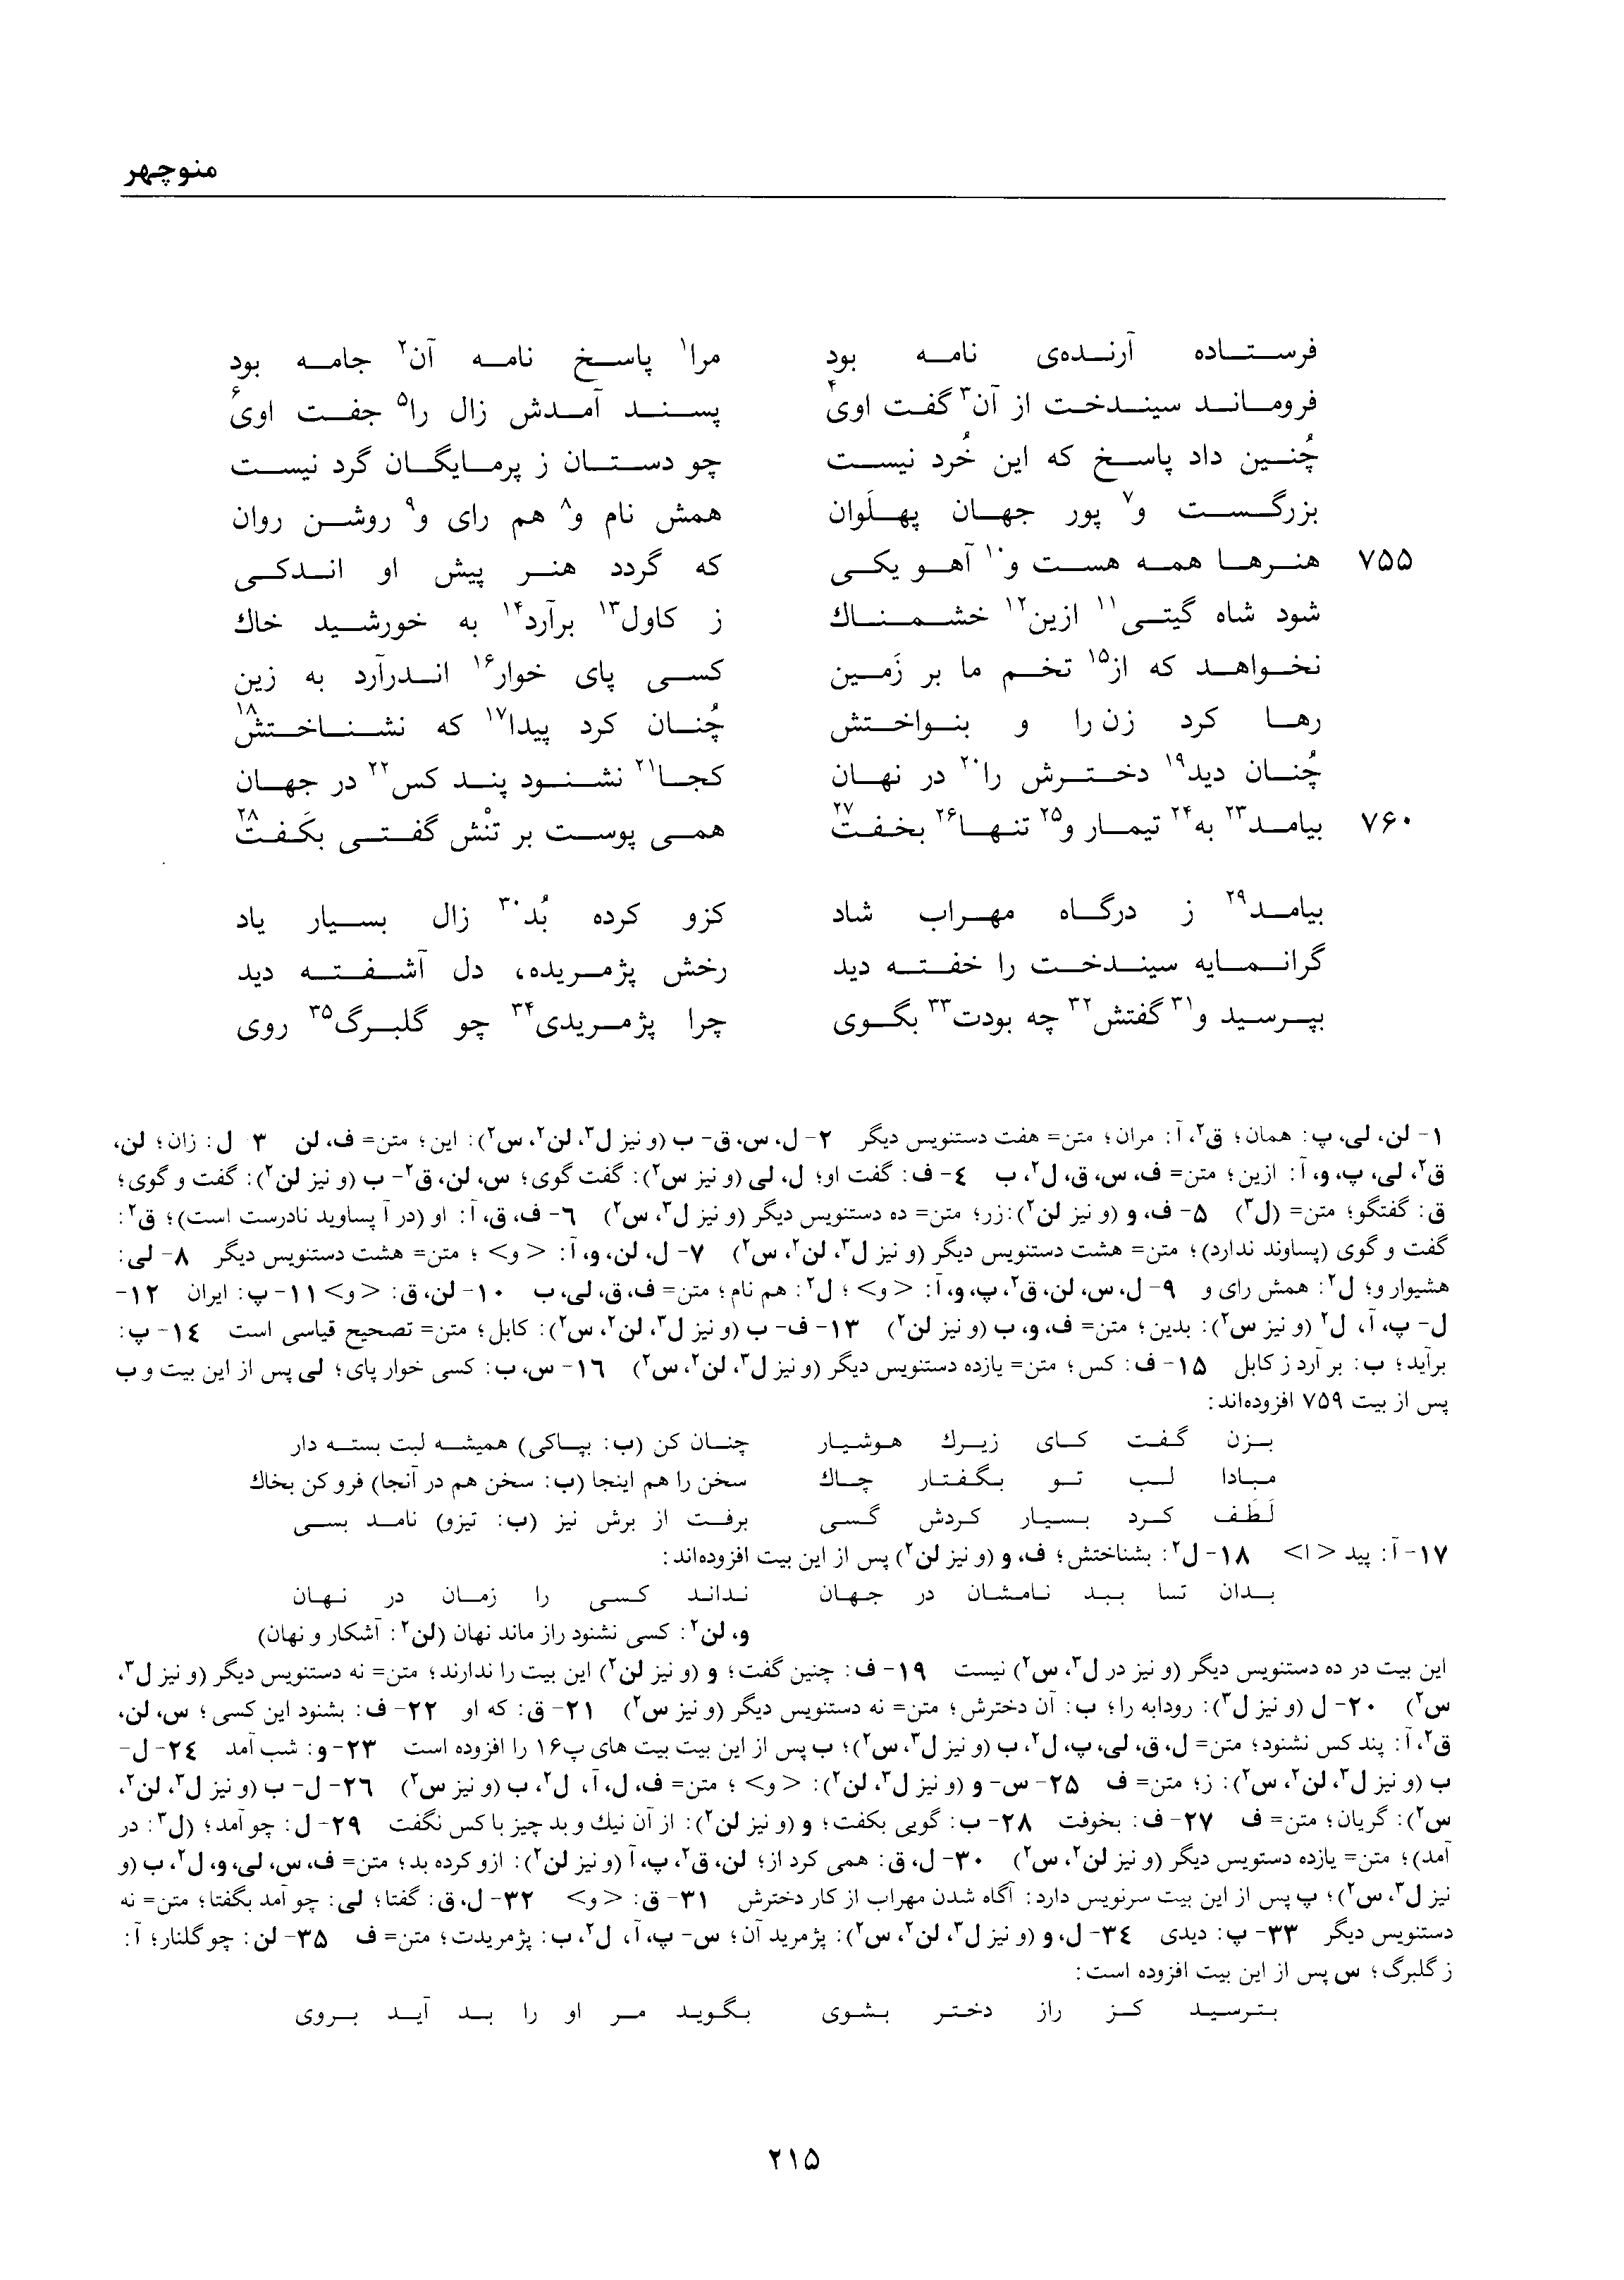 منوچهر
فرستاده آرنده‌ی نامه بود مرا۱ پاسخ نامه آن۲ جامه بود
فروماند سیندخت از آن۳ گفت اوی۴ پسند آمدش زال را۵ جفت اوی۶
چُنین داد پاسخ که این خُرد نیست چو دستان ز پرمایگان گرد نیست
بزرگست و۷ پور جهان پهلَوان همش نام و۸ هم رای و۹ روشن روان
۷۵۵ هنرها همه هست و۱۰ آهو یکی که گردد هنر پیش او اندکی
شود شاه گیتی۱۱ ازین۱۲ خشمناك ز کاول۱۳ برآرد۱۴ به خورشید خاك
نخواهد که از۱۵ تخم ما بر زَمین کسی پای خوار۱۶ اندرآرد به زین
رها کرد زن را و بنواختش چُنان کرد پیدا۱۷ که نشناختش۱۸
چُنان دید۱۹ دخترش را۲۰ در نهان کجا۲۱ نشنود پند کس۲۲ در جهان
۷۶۰ بیامد۲۳ به۲۴ تیمار و۲۵ تنها۲۶ بخفت۲۷ همی پوست بر تنْش گفتی بکَفت۲۸
بیامد۲۹ ز درگاه مهراب شاد کزو کرده بُد۳۰ زال بسیار یاد
گرانمایه سیندخت را خفته دید رخش پژمریده، دل آشفته دید
بپرسید و۳۱ گفتش۳۲ چه بودت۳۳ بگوی چرا پژمریدی۳۴ چو گلبرگ۳۵ روی
۱- لن، لی، پ: همان؛ ق۲، آ: مران؛ متن= هفت دستنویس دیگر ۲- ل، س، ق- ب (و نیز ل۳، لن۲، س۲): این؛ متن= ف، لن ۳ ل: زان؛ لن،
ق۲، لی، پ، و، آ: ازین؛ متن= ف، س، ق، ل۲، ب ٤- ف: گفت او؛ ل، لی (و نیز س۲): گفت گوی؛ س، لن، ق۲- ب (و نیز لن۲): گفت و گوی؛
ق: گفتگو؛ متن= (ل۳) ۵- ف، و (و نیز لن۲):زر؛ متن= ده دستنویس دیگر (و نیز ل۳، س۲) ٦- ف، ق، آ: او (در آ پساوید نادرست است)؛ ق۲:
گفت و گوی (پساوند ندارد)؛ متن= هشت دستنویس دیگر (و نیز ل۳، لن۲، س۲) ۷- ل، لن، و، آ: <و>؛ متن= هشت دستنویس دیگر ۸- لی:
هشیوار و؛ ل۲: همش رای و ۹- ل، س، لن، ق۲، پ، و، آ: <و>؛ ل۲: هم نام؛ متن= ف، ق، لی، ب ۱۰- لن، ق: <و> ۱۱- پ: ایران ۱۲-
ل- پ، آ، ل۲ (و نیز س۲): بدین؛ متن= ف، و، ب (و نیز لن۲) ۱۳- ف- ب (و نیز ل۳، لن۲، س۲): کابل؛ متن= تصحیح قیاسی است ۱٤- پ:
برآید؛ ب: بر آرد ز کابل ۱۵- ف: کس؛ متن= یازده دستنویس دیگر (و نیز ل۳، لن۲، س۲) ۱٦- س، ب: کسی خوار پای؛ لی پس از این بیت و ب
پس از بیت ۷۵۹ افزوده‌اند:
بزن گفت کای زیرك هوشیار چنان کن (ب: بپاکی) همیشه لبت بسته دار
مبادا لب تو بگفتار چاك سخن را هم اینجا (ب: سخن هم در آنجا) فرو کن بخاك
لَطَف کرد بسیار کردش گسی برفت از برش نیز (ب: تیزو) نامد بسی
۱۷- آ: پید <ا> ۱۸- ل۲: بشناختش؛ ف، و (و نیز لن۲) پس از این بیت افزوده‌اند:
بدان تسا ببد نامشان در جهان نداند کسی را زمان در نهان
و، لن۲: کسی نشنود راز ماند نهان (لن۲: آشکار و نهان)
این بیت در ده دستنویس دیگر (و نیز در ل۳، س۲) نیست ۱۹- ف: چنین گفت؛ و (و نیز لن۲) این بیت را ندارند؛ متن= نه دستنویس دیگر (و نیز ل۳،
س۲) ۲۰- ل (و نیز ل۳): رودابه را؛ ب: آن دخترش؛ متن= نه دستنویس دیگر (و نیز س۲) ۲۱- ق: که او ۲۲- ف: بشنود این کسی؛ س، لن،
ق۲، آ: پند کس نشنود؛ متن= ل، ق، لی، پ، ل۲، ب (و نیز ل۳، س۲)؛ ب پس از این بیت بیت های پ۱۶ را افزوده است ۲۳- و: شب آمد ۲٤- ل-
ب (و نیز ل۳، لن۲، س۲): ز؛ متن= ف ۲۵- س- و (و نیز ل۳، لن۲): <و>؛ متن= ف، ل، آ، ل۲، ب (و نیز س۲) ۲٦- ل- ب (و نیز ل۳، لن۲،
س۲): گریان؛ متن= ف ۲۷- ف: بخوفت ۲۸- ب: گویی بکفت؛ و (و نیز لن۲): از آن نیك و بد چیز با کس نگفت ۲۹- ل: چو آمد؛ (ل۳: در
آمد)؛ متن= یازده دستویس دیگر (و نیز لن۲، س۲) ۳۰- ل، ق: همی کرد از؛ لن، ق۲، پ، آ (و نیز لن۲): ازو کرده بد؛ متن= ف، س، لی، و، ل۲، ب (و
نیز ل۳، س۲)؛ پ پس از این بیت سرنویس دارد: آگاه شدن مهراب از کار دخترش ۳۱- ق: <و> ۳۲- ل، ق: گفتا؛ لی: چو آمد بگفتا؛ متن= نه
دستنویس دیگر ۳۳- پ: دیدی ۳٤- ل، و (و نیز ل۳، لن۲، س۲): پژمرید آن؛ س- پ، آ، ل۲، ب: پژمریدت؛ متن= ف ۳۵- لن: چو گلنار؛ آ:
ز گلبرگ؛ س پس از این بیت افزوده است:
بترسید کز راز دختر بشوی بگوید مر او را بد آید بروی
۲۱۵